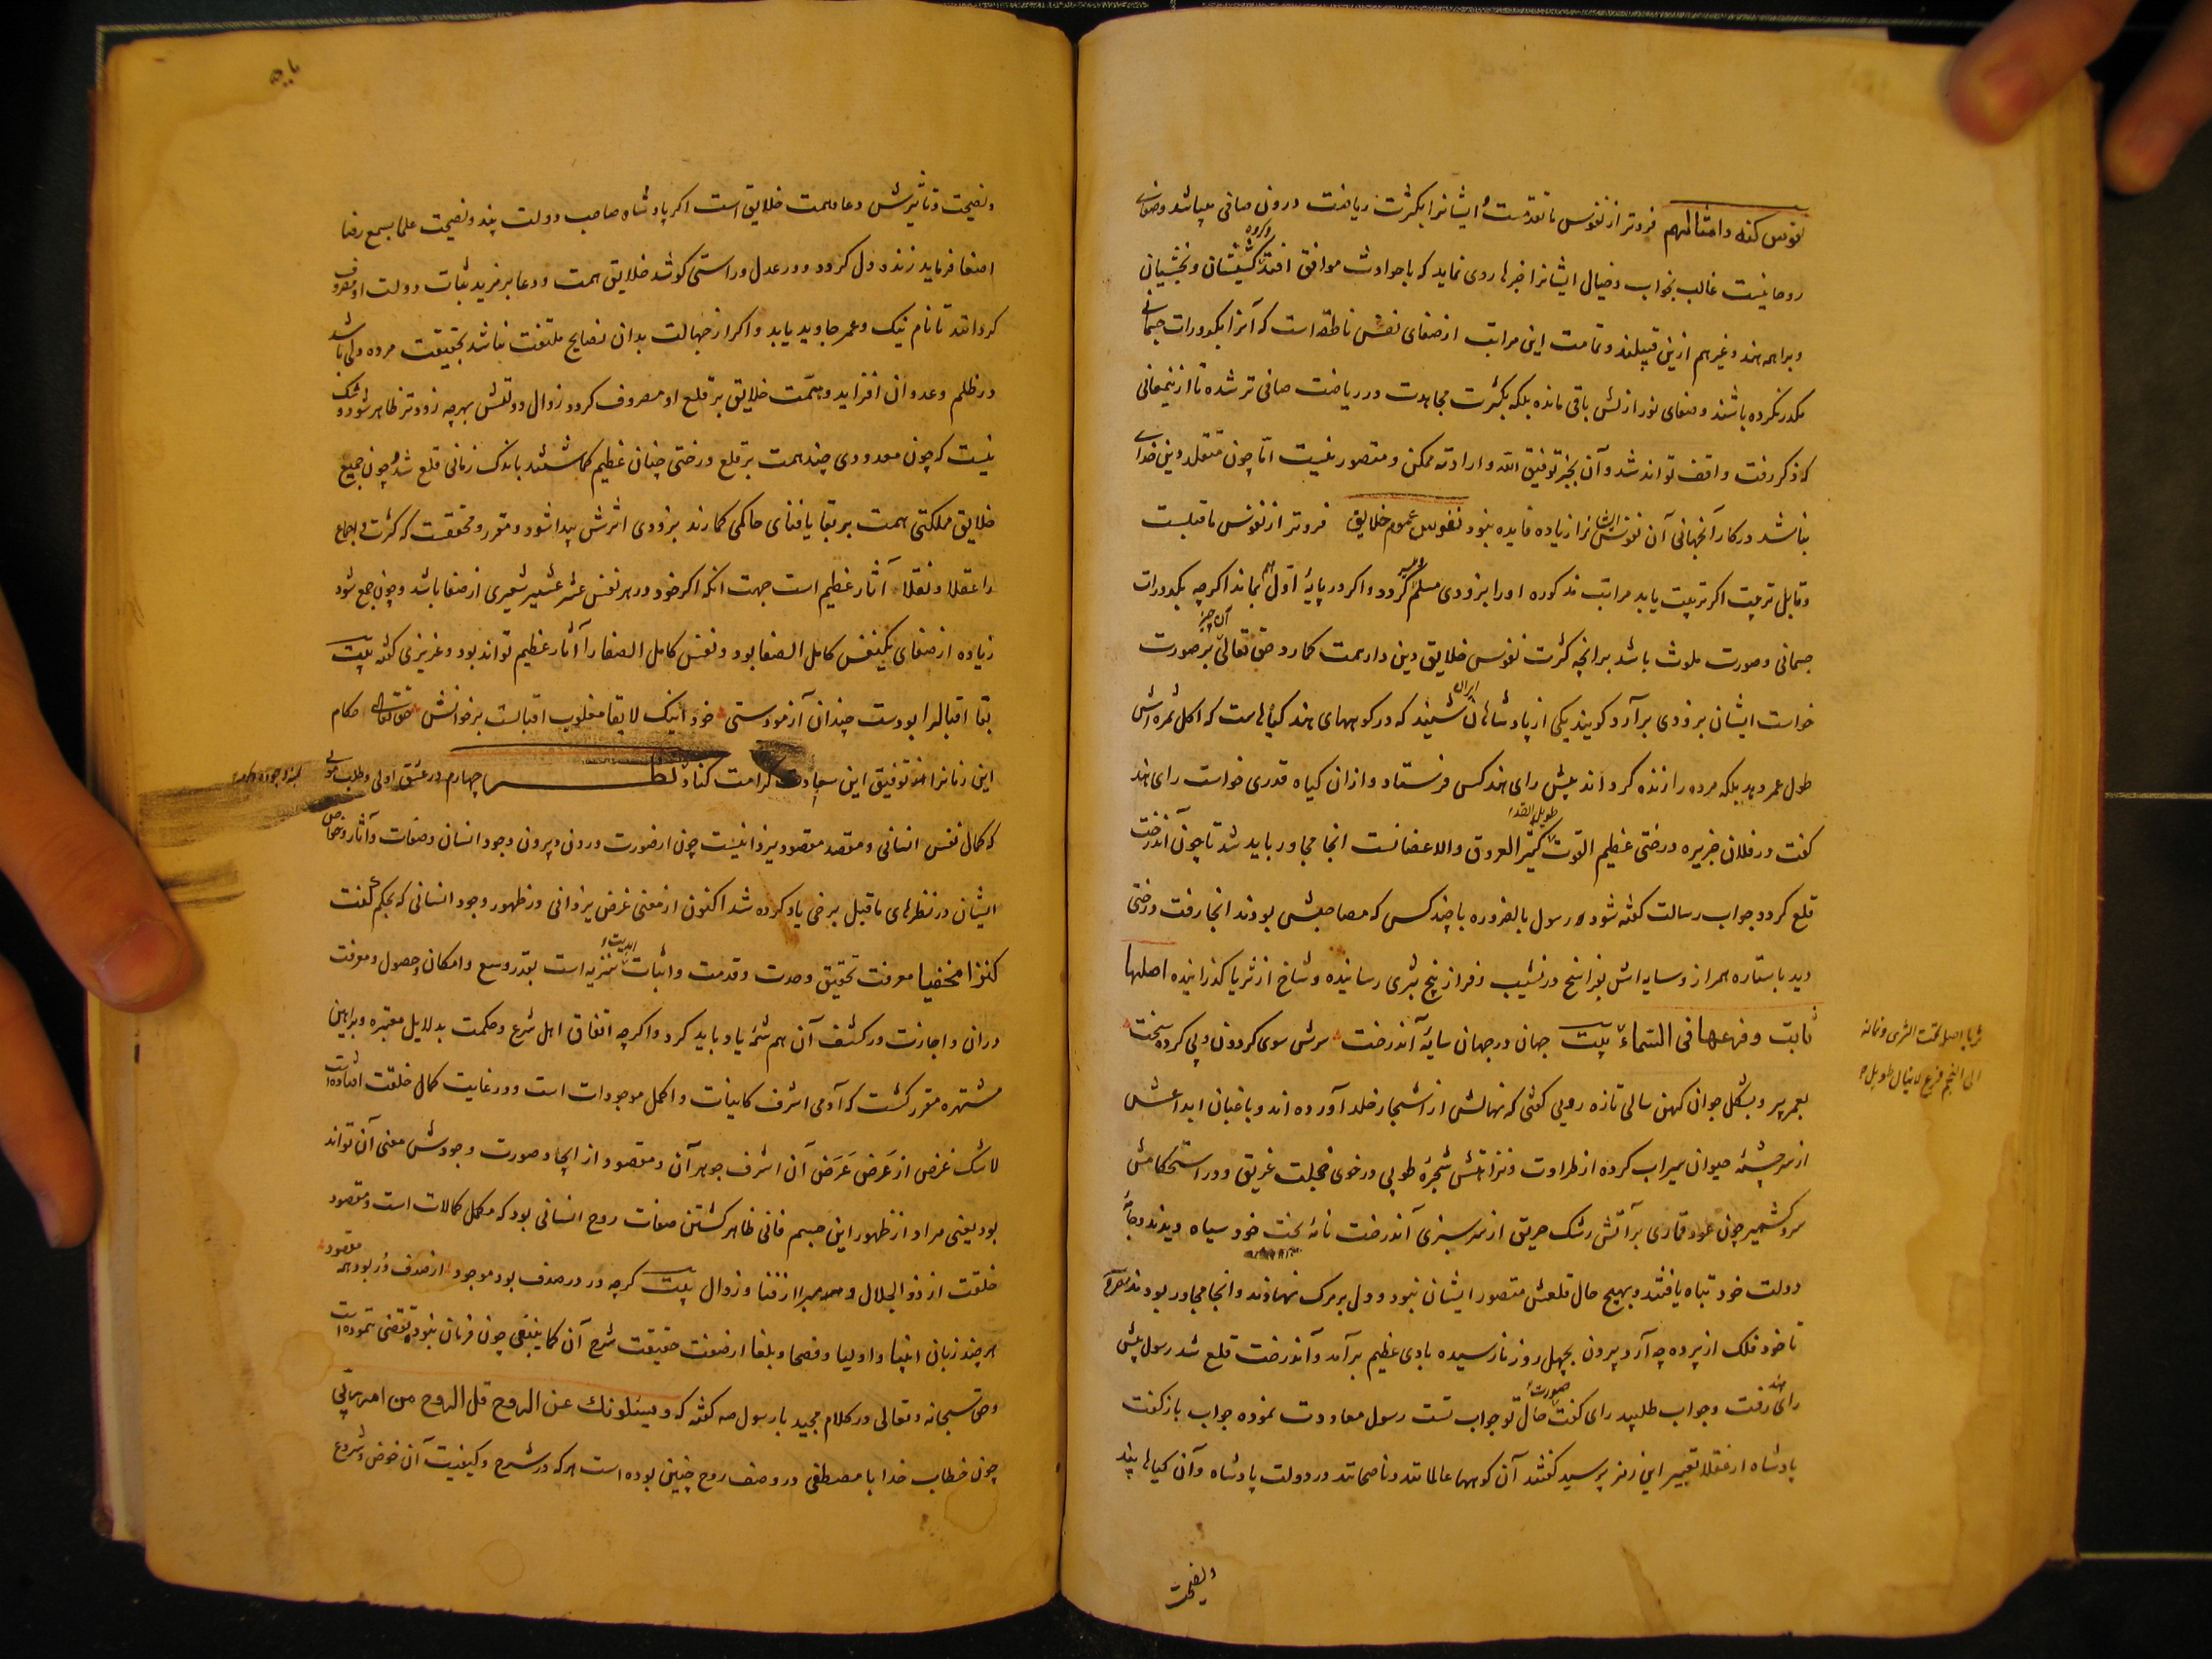 نفوس کهنه وامثالهم فروتر از نفوس ما تقدمست ایشانرا بکثرت ریاضت درون صافی میباشد وصفای
روحانیست غالب بخواب وخیال ایشانرا خبرها روی نماید که با حوادث موافق افتد کشیشان وبخشیان
وبراهمه هند وغیرهم ازین قبیلند وتمامت این مراتب از صفای نفس ناطقه است که آنرا بکدورات جسمانی
مکدر نکرده باشند وصفای نور ازلش باقی مانده بلکه بکثرت مجاهدت ودریاضت صافی تر شده تا ازینمعانی
که ذکر رفت واقف تواند شد وآن بجز توفیق الله وارادته ممکن ومتصور نیست امّا چون متقلد دین خدای
نباشد در کار آنجهانی آن نفوس ایشانرا زیاده فایده نبود نفوس عموم خلایق فروتر از نفوس ما قبلست
وقابل تربیت اگر تربیت یابد مراتب مذکوره اورا بزودی مسلم گردد واگر در پایهٔ اول هم بماند اگرچه بکدورات
جسمانی وصورت ملوث باشد برانچه کثرت نفوس خلایق دین دار همت گمارد حق تعالی آن چیز بر صورت
خواست ایشان بزودی برآرد گویند یکی از پادشاهان ایران شنید که در کوههای هند گیاهست که اکل ثمره اش
طول عمر دهد بلکه مرده را زنده گرداند پیش رای هند کس فرستاد وازان گیاه قدری خواست رای هند
گفت در فلان جزیره درختی عظیم القوت طویل القد کثیر العروق والاعضانست انجا مجاور باید شد تا چون آندرخت
قلع گردد جواب رسالت گفته شود رسول بالضروره با چند کس که مصاحبش بودند انجا رفت درختی
دید با ستاره همراز وسایه اش بفراسخ در نشیب وفراز بیخ بثری رسانیده وشاخ از ثریا گذرانیده اصلها
ثابت وفرعها فی السماء بیت جهان در جهان سایهٔ آندرخت سرش سوی گردون وپی کرده سخت
ثریا اصل تحت الثری ونمانه
الی النجم فرع لاینال طویل
بعمر پیر وبشکل جوان کهن سالی تازه رویی گفتی که نهالش از اشجار خلد آورده اند وباغبان ابداعش
از سرچشمهٔ حیوان سیراب کرده از طراوت ونزاهتش شجرهٔ طوبی در خوی خجلت غریق ودر استحکامش
سرو کشمیر چون عود قماری بر آتش رشک حریق از سرسبزی آندرخت نامهٔ بخت خود سیاه دیدند وجامهٔ
دولت خود تباه یافتند وبهیچ حال قلعش متصور ایشان نبود ودل بر مرگ نهادند وانجا مجاور بودند مصراع
تا خود فلک از پرده چه آرد بیرون بچهل روز نارسیده بادی عظیم برآمد وآندرخت قلع شد رسول پیش
رای هند رفت وجواب طلبید رای گفت صورت حال تو جواب تست رسول معاودت نموده جواب بازگفت
پادشاه از عقلا تعبیر این رمز پرسید گفتند آن کوهها عالمانند وناصحانند در دولت پادشاه وآن گیاه پند
ونصیحت
ونصیحت وتأثیرش دعا وهمت خلایق است اگر پادشاه صاحب دولت پند ونصیحت علما بسمع رضا
اصغا فرماید زنده دل گردد ودر عدل وراستی کوشد خلایق همت ودعا بر مزید ثبات دولت او مصروف
گردانند تا نام نیک وعمر جاوید یابد واگر از جهالت بدان نصایح ملتفت نباشد بحقیقت مرده ولی باشد
در ظلم وعدوان افزاید وهمّت خلایق بر قلع او مصروف گردد زوال دولتش بهرچه زودتر ظاهر شود وشک
نیست که چون معدودی چند همت بر قلع درختی چنان عظیم گماشتند باندک زمانی قلع شد وچون جمیع
خلایق مملکتی همت بر بقا یا فنای حاکمی گمارند بزودی اثرش پیدا شود ومقرر ومحققست که کثرت واجماع
را عقلا ونقلا آثار عظیم است جهت انکه اگر خود در هر نفس عشر عشیر شعیری از صفا باشد وچون جمع شود
زیاده از صفای یکنفس کامل الصفا بود ونفس کامل الصفا را آثار عظیم تواند بود وعزیزی گفته بیت
بقا اقبالرا بودست چندان آزمودستی خود اینک لابقا مقلوب اقبالست برخوانش حق تعالی حکام
این زمانرا توفیق این سعادت کرامت کناد نظر چهارم در عشق اولی وطلب مولی
که کمال نفس انسانی ومقصد مقصود یزدانیست چون از صورت درون وبیرون وجود انسان وصفات وآثار وخواص
ایشان در نظرهای ما قبل برخی یاد کرده شد اکنون از معنی غرض یزدانی در ظهور وجود انسانی که بحکم کنت
کنزا مخفیا معرفت تحقیق وحدت وقدمت واثبات ابدیت تنزیه است بقدر وسع وامکان وحصول ومعرفت
دران واجازت در کشف آن هم شمهٔ یاد باید کرد واگرچه اتفاق اهل شرع وحکمت بدلایل معتبره وبراهین
مشتهره مقرر گشت که آدمی اشرف کاینات واکمل موجودات است ودر غایت کمال خلقت افتاده است
لاشک غرض از عَرض عَرَض آن اشرف جوهر آن ومقصود از ایجاد صورت وجودش معنی آن تواند
بود یعنی مراد از ظهور این جسم فانی ظاهر گشتن صفات روح انسانی بود که مکمل کمالات است ومقصود
خلقت از ذو الجلال ومبرا از فنا وزوال بیت گرچه در در صدف بود موجود از صدف دُر بود همه مقصود
هر چند زبان انبیا واولیا وفصحا وبلغا از صفت حقیقت شرح آن کما ینبغی چون فرمان نبوده تقصی ننموده است
وحق سبحانه وتعالی در کلام مجید با رسول صه گفته که ویسئلونک عن الروح قل الروح من امر ربّی
چون خطاب خدا با مصطفی در وصف روح چنین بوده است هر که در شرح وکیفیت آن خوض وشروع